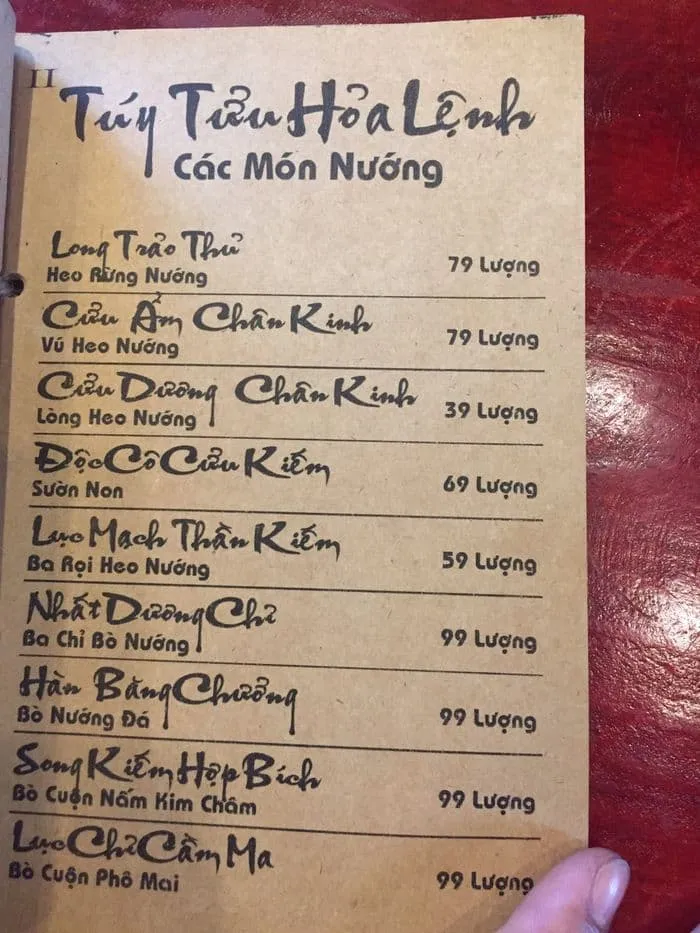 II
Túy Tửu Hỏa Lệnh
Các Món Nướng
Long Trảo Thủ
Heo Rừng Nướng
79 Lượng
Cửu Ẩm Chân Kinh
Vú Heo Nướng
79 Lượng
Cửu Dương Chân Kinh
Lòng Heo Nướng
39 Lượng
Độc Cô Cửu Kiếm
Sườn Non
69 Lượng
Lục Mạch Thần Kiếm
Ba Rọi Heo Nướng
59 Lượng
Nhất Dương Chỉ
Ba Chỉ Bò Nướng
99 Lượng
Hàn Băng Chưởng
Bò Nướng Đá
99 Lượng
Song Kiếm Hợp Bích
Bò Cuộn Nấm Kim Châm
99 Lượng
Lục Chỉ Cầm Ma
Bò Cuộn Phô Mai
99 Lượng